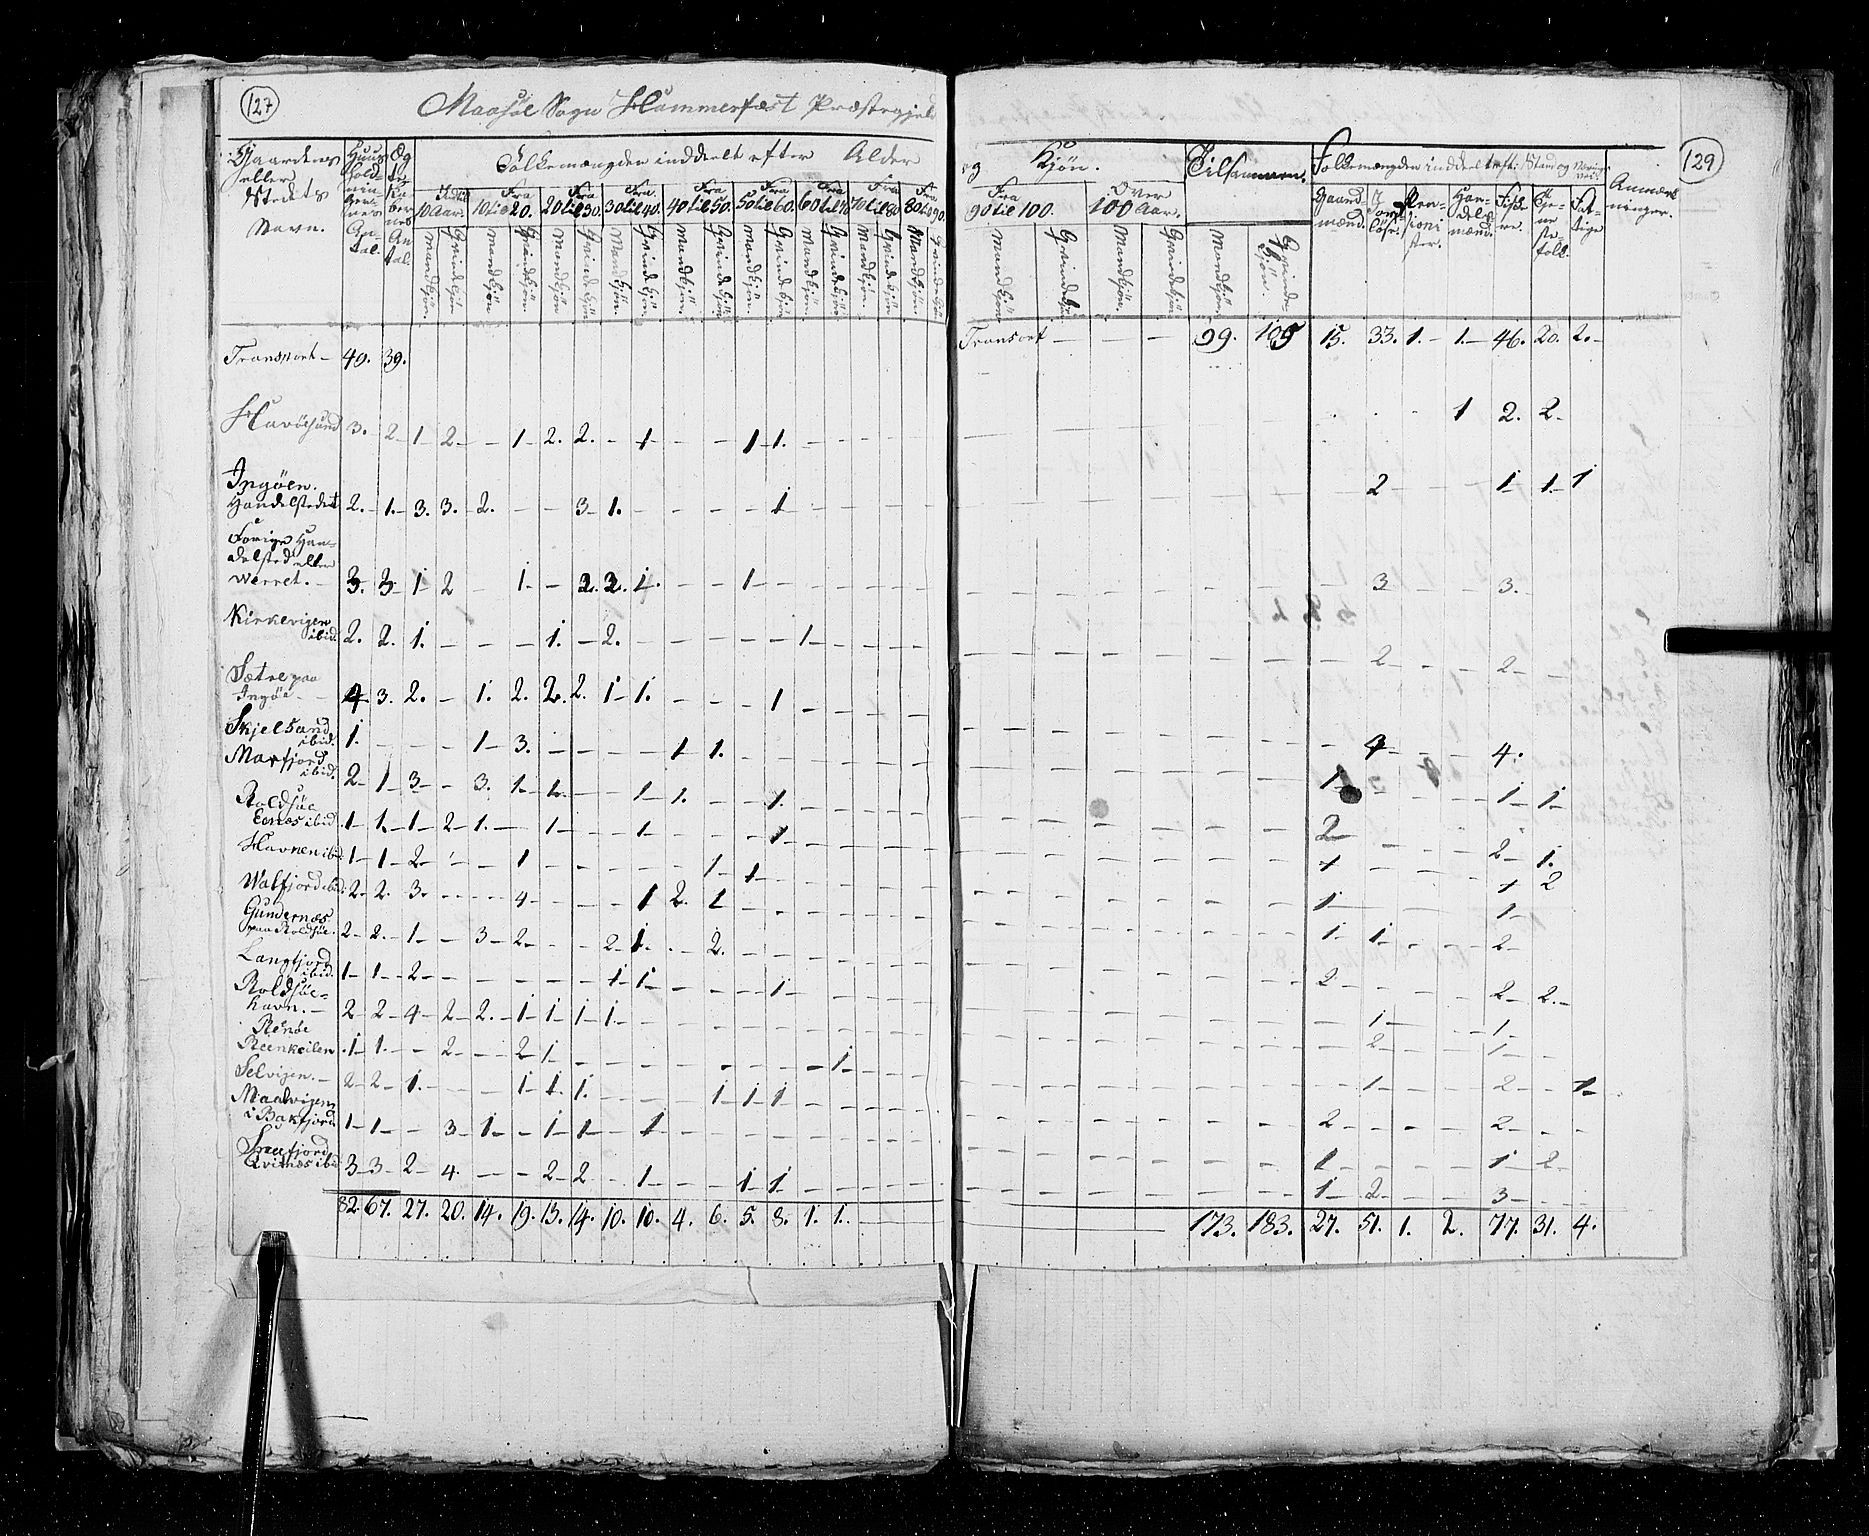 127
Maasöe Sogn Hammerfest Præstegjeld
129
Gaardens eller Stedets Navn.
Huusholdningernes Antal.
Ægteskabernes Antal.
Folkemængden inddeelt efter Alder og Kjøn.
Tilsammen.
Folkemængden inddeelt efter Stand og
Anmærkninger.
10 Aar. Fra 10 til 20. Fra 20 til 30. Fra 30 til 40. Fra 40 til 50. Fra 50 til 60. Fra 60 til 70 Fra 70 til 80 Fra 80 til 90.
Fra 90 til 100. Over 100 Aar.
Mandkjøn. Qvindekjøn
Gaardmænd. Jordløse. Pensionister. Handelsmænd. Fiskere. Tjenestefolk. Fattige
Transport – 40. 39.
Transport — — — 99. 105 15. 33. 1. – 1. – 46. 20. 2. –
Havöesund 3. 2 – 1 – 2 – – 1 – 2. 2. – 1 – – – 1 – 1. – – – –
1 2. 2 –
Ingöen.
Handelstedet 2. – 1. – 3. 3. – 2. – – 3 – 1. – – – – 1 – – – –
2 – – – 1 – 1 – 1
Forige Handelsted eller
Werret. – 3. 3 – 1 – 2 – 1 – – 2. 2. 1 – – – 1 – – – –
3 – – – 3.
Kirkevigen
ibid. 2. 2. 1. – – – – 1. – 2. – – – – – 1 – – –
2 – – – 2 –
Sætre paa
Ingöe – – 4 – 3. 2. – 1. 2. 2. 2. 1 – 1. – – – 1 – – – –
4 – – – 4.
Skjelsand
ibid. 1. – – – 1 – 3. – – – – 1 1. – – –
Marfjord
ibid. 2 – 1 – 3 – – 3. 1 – 1. – – 1 – 1. – – 1. – – –
1 – – – 1 – 1 –
Roldsöe
Eenæs ibid. 1 – 1. – 1 – 2 – 1. – – 1 – – – 1 – – – – 1 – –
2 – – – – 2 – 1.
Havnen ibid. 1 – 1 – 2 – – – – 1 – – – – – – 1 – 1 – – –
1 – – – – 1 – 2
Walfjord ibid. 2 – 2. 3. – – – – 4 – – – – 1 2. 1 – – –
1 – – – – 1 –
Gundernæs
paa Roldsöe. 2 – 2. – 1 – – 3 – 2 – – – 2 – 1. – – 2. – –
1 – 1 – – – 2 –
Langfjord
ibid. 1 – 1 – 2 – – – – – – – 1 – 1 – – – – 1 – –
2 – – – – 2 – 2. –
Roldsöe-
havn. – 2 – 2 – 4 – 2 – 2. – 1 – 1 – 1 – 1 – – – –
1 – – – 1 –
Renöe
Reenkeilen . 1 – 1. – – 2 – – – 2 1 – – – – – – – – – 1 –
2 – – – 1 –
Selvigen. – 2 – 2 – 1. – – – – 1 – 1. 1. – – – – 1 – 1 – 1 – – –
1 – – – 2 – – 1 –
Maalvigen
i Bakfjord. 1 – 1 – – 3 – 1 – – 1 – 1 – – 1 – – – –
2 – – – – 2 – – –
Sneefjord
Qvitnæs ibid. 3 – 3 – 2 – 4. – – – 2 – 2 – – 1 – – – 1 – 1 – – –
1 – – – – 1 – 2 –
1 – 2 – – – 3 – – –
82. 67. 27. 20. 14. 19. 13. 14. 10. 10. 4. 6. 5. 8. 1. 1. – – – –
173. 183. 27. 51. 1. 2. 77. 31. 4.